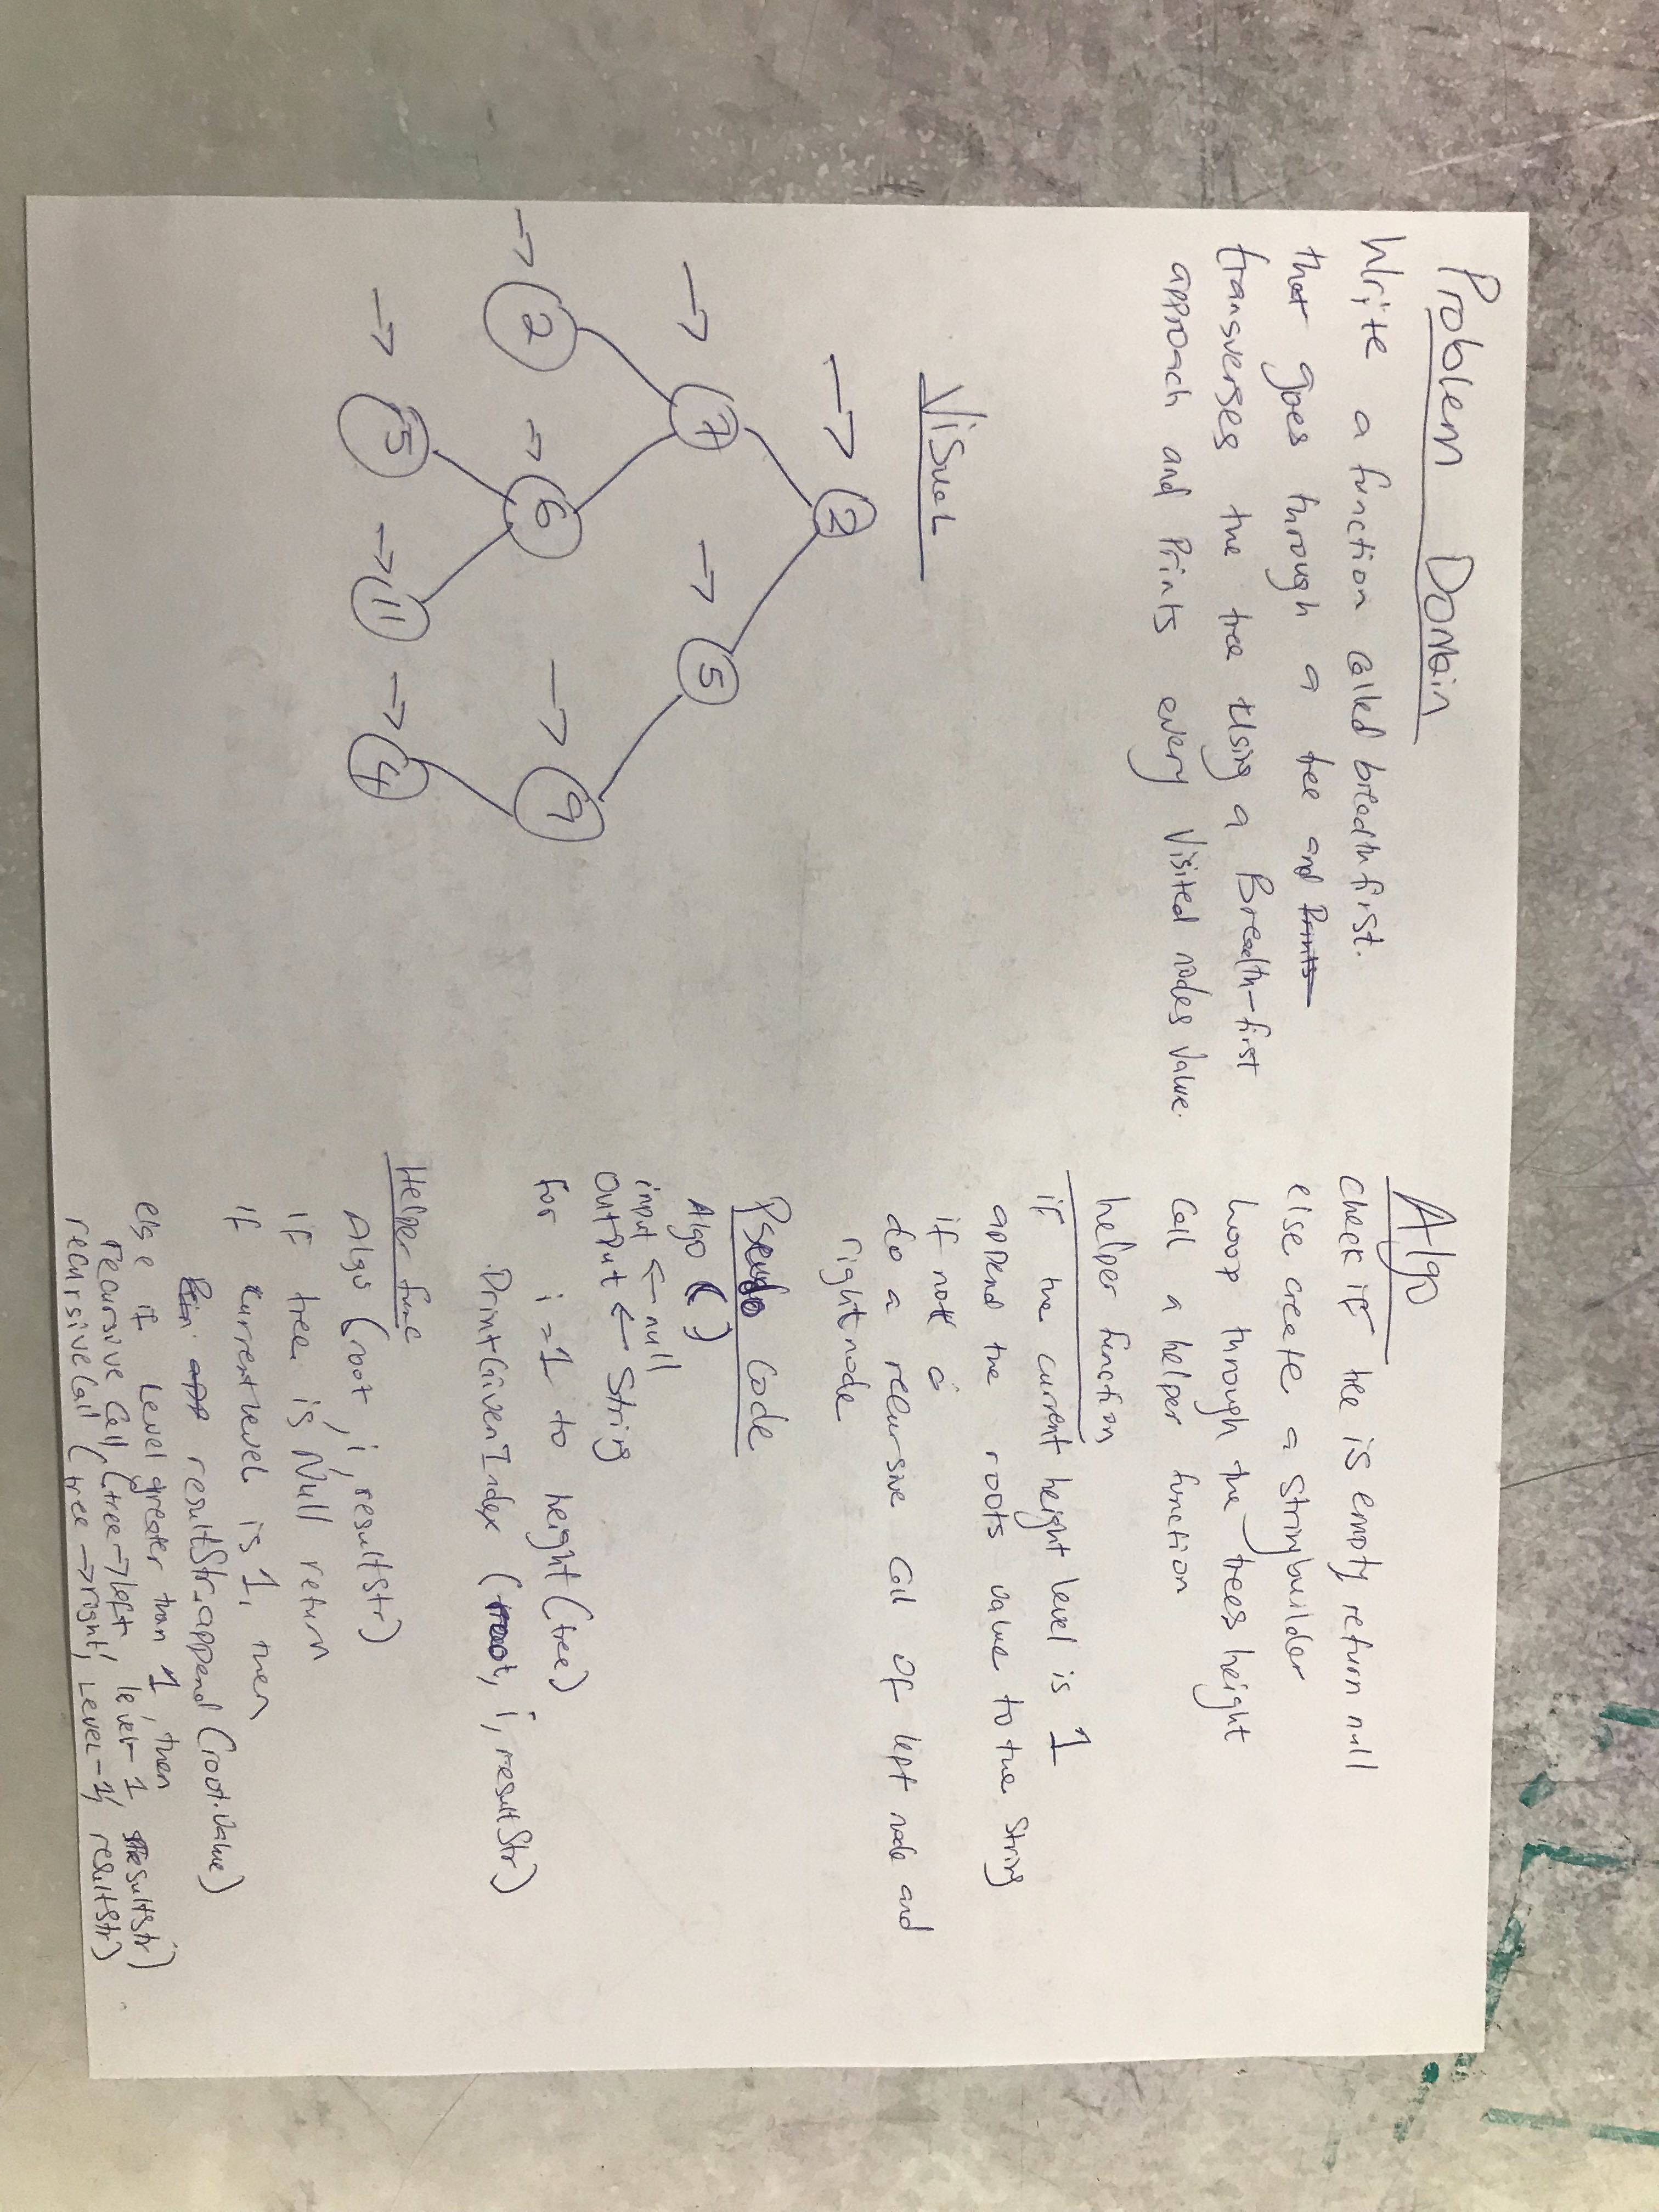 Problem Domain
Write a function called breadth first.
that goes through a tree and Prints
transverses the tree using a Breadth-first
approach and Prints every visited nodes value.
Visual
→ 2
→ 7 → 5
→ 2 → 6 → 9
→ 5 → 11 → 4
Algo
check if tree is empty return null
else create a stringbuilder
Loop through the trees height
Call a helper function
helper function
if the current height level is 1
append the roots value to the string
if not
do a recursive call of left node and
right node
Pseudo Code
Algo ()
input ← null
Output ← String
for i=1 to height (tree)
PrintGivenIndex (root, i, resultStr)
Helper func
Algo (root, i, resultstr)
if tree is Null return
if current level is 1, then
resultStr.append (root.value)
else if Level greater than 1, then
recursive Call, (tree→left, level-1 resultStr)
recursive Call (tree→right, Level-1, resultStr)